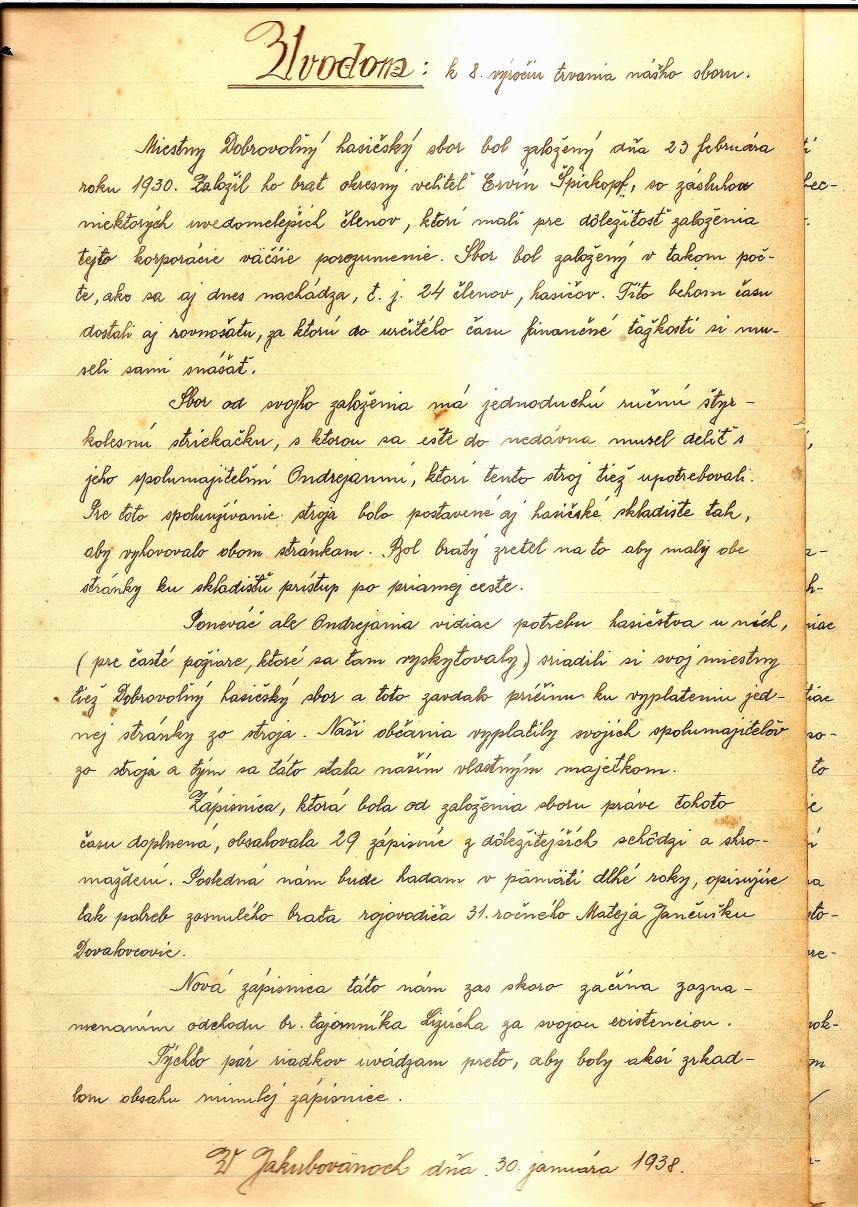 Úvodom: k 8. výročiu trvania nášho sboru.
Miestny Dobrovoľný hasičský sbor bol založený dňa 23 februára
roku 1930. Založil ho brat okresný veliteľ Ervín Spickopf, so zásluhou
niektorých uvedomelejších členov, ktorí mali pre dôležitosť založenia
tejto korporácie väčšie porozumenie. Sbor bol založený v takom poč-
te, ako sa aj dnes nachádza, t. j. 24 členov, hasičov. Títo behom času
dostali aj rovnošatu, za ktorú do určitého času finančné ťažkosti si mu-
seli sami snášať.
Sbor od svojho založenia má jednoduchú ručnú štyr-
kolesnú striekačku, s ktorou sa ešte do nedávna musel deliť s
jeho spolumajiteľmi Ondrejanmi, ktorí tento stroj tiež upotrebovali.
Pre toto spoluužívanie stroja bolo postavené aj hasičské skladište tak,
aby vyhovovalo obom stránkam. Bol bratý zreteľ na to aby maly obe
stránky ku skladištu prístup po priamej ceste.
Poneváč ale Ondrejania vidiac potrebu hasičstva u nich,
(pre časté požiare, ktoré sa tam vyskytovaly) sriadili si svoj miestny
tiež Dobrovoľný hasičský sbor a toto zavdalo príčinu ku vyplateniu jed-
nej stránky zo stroja. Naši občania vyplatily svojich spolumajiteľov
zo stroja a tým sa táto stala naším vlastným majetkom.
Zápisnica, ktorá bola od založenia sboru práve tohoto
času doplnená, obsahovala 29 zápisníc z dôležitejších schôdzí a shro-
maždení. Posledná nám bude hádam v pamäti dlhé roky, opisujúc
tak pohreb zosnulého brata rojovodiča 31. ročného Mateja Jančušku
Dovalovcovie.
Nová zápisnica táto nám zas skoro začína zazna-
menaním odchodu br. tajomníka Lizúcha za svojou existenciou.
Týchto pár riadkov uvádzam preto, aby boly aksi zrkad-
lom obsahu minulej zápisnice.
V Jakubovanoch dňa 30. januára 1938.